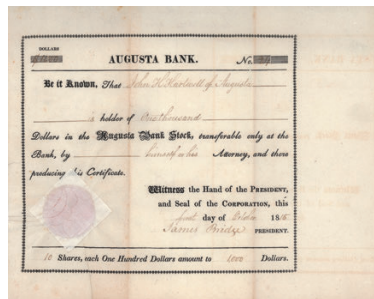 DOLLARS
AUGUSTA BANK. No.
Be it Known, That John H. Hartwell of Augusta
is holder of one thousand
Dollars in the Augusta Bank Stock, transferable only at the
Bank, by himself or his Attorney, and there
producing this Certificate.
Witness the Hand of the PRESIDENT,
and Seal of the CORPORATION, this
first day of October 18
James Bridge PRESIDENT.
10 Shares, each One Hundred Dollars amount to 1000 Dollars.